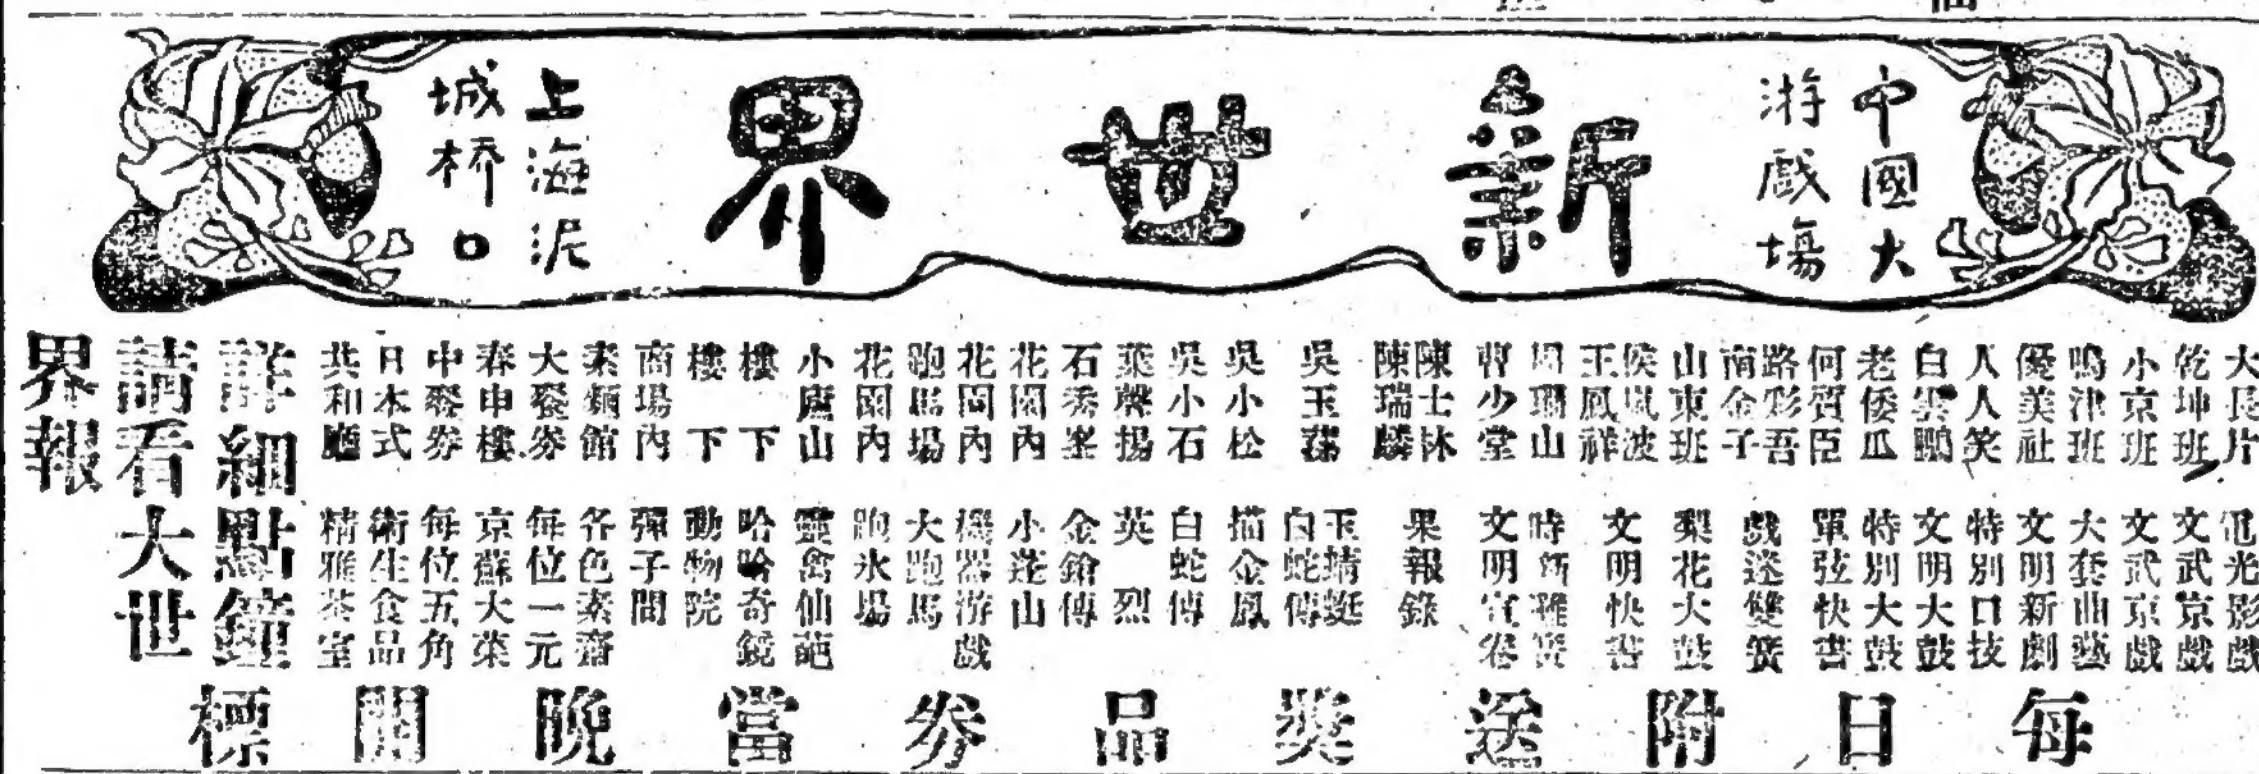 中國大
游戲場
新世界
上海泥
城橋口
大長片 電光影戲
乾坤班 文武京戲
小京班 文武京戲
鳴津班 大套曲藝
優美社 文明新劇
人人笑 特別口技
白雲鵬 文明大鼓
老倭瓜 特別大鼓
何質臣 單弦快書
路彩吾 南金子 戲迷雙簧
山東班 梨花大鼓
侯嵐波 王鳳祥 文明快書
周珊山 時新雅簧
曹少堂 文明宣卷
陳士林 陳瑞麟 果報錄
吳玉蓀 玉蜻蜓 白蛇傳
吳小松 描金鳳
吳小石 白蛇傳
葉聲揚 英烈
石秀峯 金鎗傳
花園內 小蓬山
花園內 機器游戲
跑馬場 大跑馬
花園內 跑氷場
小廬山 靈禽仙葩
樓下 哈哈奇鏡
樓下 動物院
商場內 彈子間
素麵館 各色素齋
大餐券 每位一元
春申樓 京蘇大菜
中餐券 每位五角
日本式 衛生食品
共和廳 精雅茶室
詳細點鐘
請看大世
界報
每日附送獎品券當晚開標